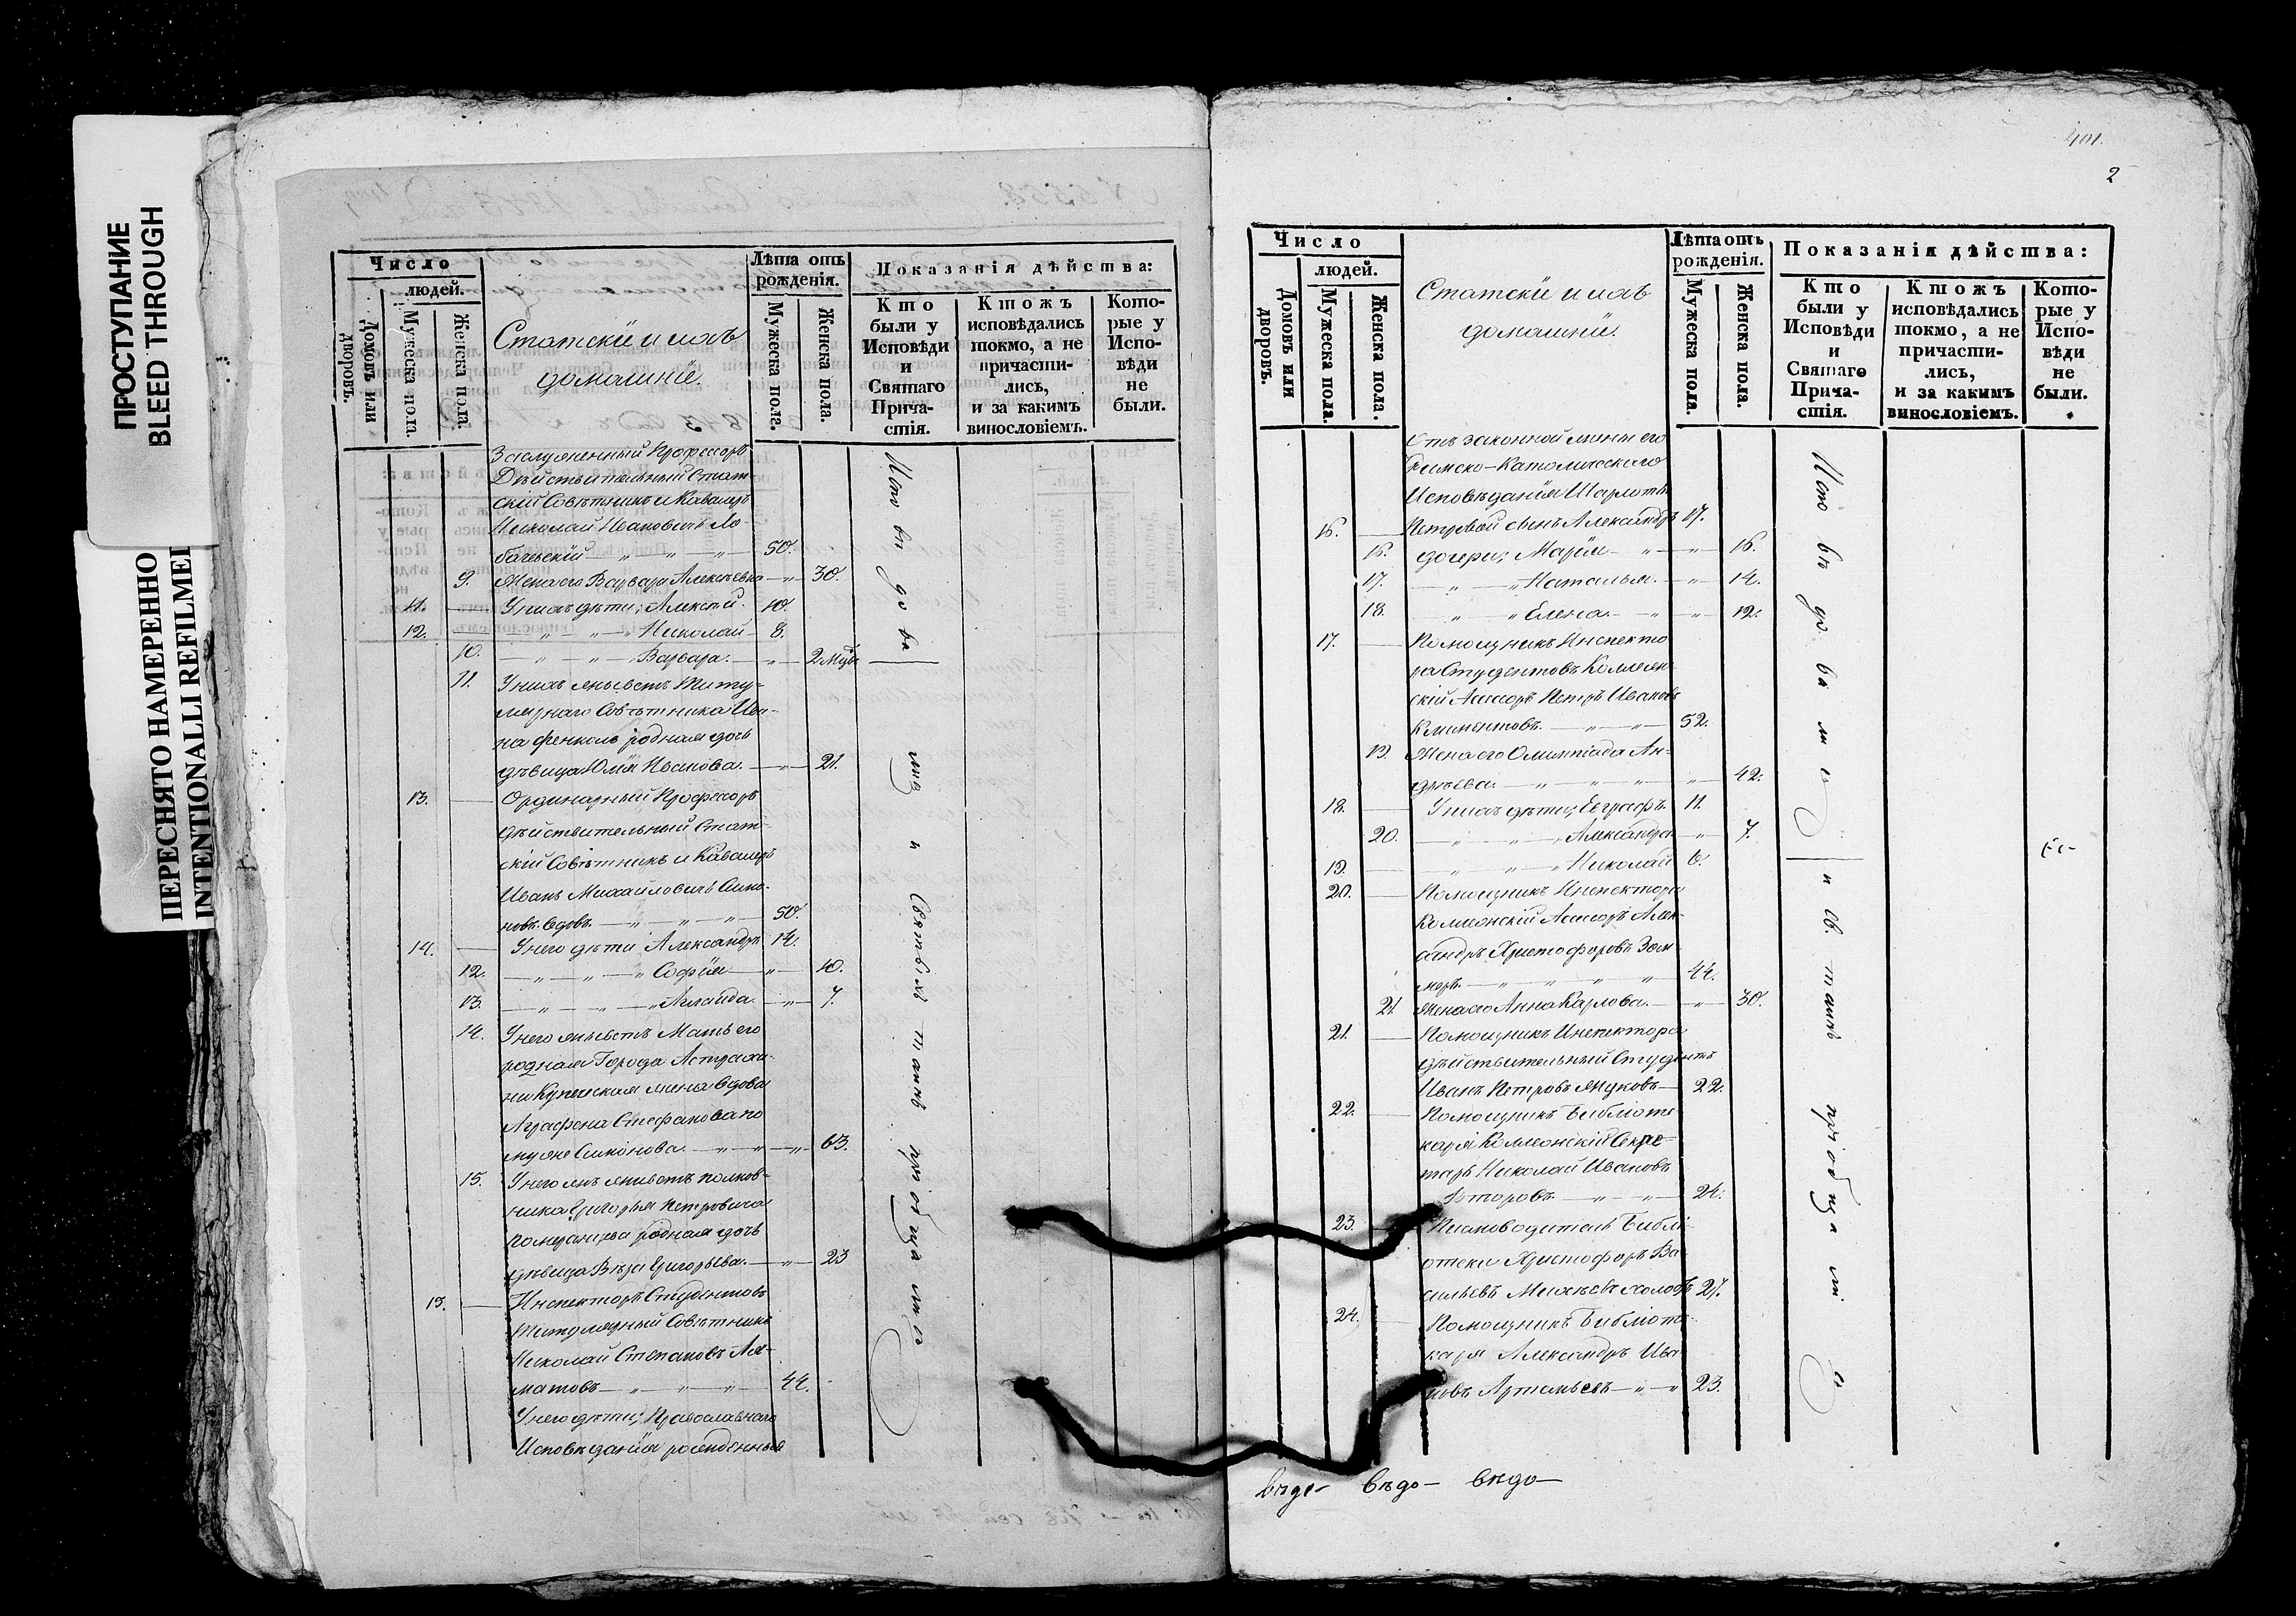 ПРОСТУПАНИЕ
BLEED THROUGH
ПЕРЕСНЯТО НАМЕРЕННО
INTENTIONALLI REFILMEI
Число
людей.
Домовъ или дворовъ.
Мужеска пола.
Женска пола.
Статскіи и ихъ
домашніе.
Лѣта отъ
рожденія.
Мужеска пола.
Женска пола.
Показанія дѣйства:
Кто
были у
Исповѣди
и
Святаго
Прича-
стія.
Ктожъ
исповѣдались
токмо, а не
причасти-
лись,
и за какимъ
винословіемъ.
Кото-
рые у
Испо-
вѣди
не
были.
Заслуженный Профессоръ
Дѣйствительный Стат-
скій Совѣтникъ и Кавалеръ
Николай Ивановичь Ло-
бачевскій — „ — „ — „ — 50.
9. Жена его Варвара Алексѣевна — „ — 30.
11. — У нихъ дѣти; Алексѣй. 10.
12. — „ — „ — „ Николай — 8.
10. — „ — „ — Варвара. — „ — 2 мцъ
11. У нихъ живетъ Титу-
лярнаго Совѣтника Ива-
на родная дочь
дѣвица Юлія Иванова. — „ — 21.
13. — Ординарный Профессоръ
дѣйствительный Стат-
скій Совѣтникъ и Кавалеръ
Иванъ Михайловичь Симо-
новъ вдовъ. — „ — „ — „ — 50.
14. — У него дѣти Александръ 14.
12. — „ — „ — „ Софія — „ — 10.
13. — „ — „ — „ Аглаида. — „ — 7.
14. У него живетъ Мать его
родная Города Астраха-
ни Купеческая жена вдова
Аграфена Стефанова по
мужѣ Симонова. — „ — „ — „ 63.
15. У него жъ живетъ полков-
ника Григорья Петровича
родная дочь
дѣвица Вѣра Григорьева. — „ — 23
15. — Инспекторъ Студентовъ
Титулярный Совѣтникъ
Николай Степановъ Ал-
матовъ — „ — „ — „ — 44.
У него дѣти; Православнаго
Исповѣданія рожденные
Исповѣдались и Святыхъ таинъ пріобщались
401.
2
Число
людей.
Домовъ или дворовъ.
Мужеска пола.
Женска пола.
Статскіи и ихъ
домашніи.
Лѣта отъ
рожденія.
Мужеска пола.
Женска пола.
Показанія дѣйства:
Кто
были у
Исповѣди
и
Святаго
Прича-
стія.
Ктожъ
исповѣдались
токмо, а не
причасти-
лись,
и за какимъ
винословіемъ.
Кото-
рые у
Испо-
вѣди
не
были.
отъ законной жены его
Римско-Католическаго
Исповѣданія Шарлоты
16. — Петровой сынъ Александръ 17.
16. дочери; Марія — „ — „ — 16.
17. — „ — „ Наталья. — „ — 14.
18. — „ — „ Елена. — „ — „ — 12.
17. — Помощникъ Инспекто
ра Студентовъ Коллеж-
скій Ассесоръ Петръ Ивановъ
Климентовъ. — „ — „ — 52.
19. Жена его Олимпіада Ан-
дрѣева. — „ — „ — „ — „ — 42.
18. — У нихъ дѣти; Евграфъ. 11.
20. — „ — „ — „ Александра — „ — 7.
19. — „ — „ — „ Николай 6.
20. — Помощникъ Инспектора
Колежскій Ассесоръ Алек-
сандръ Христофоровъ Зом-
меръ. — „ — „ — „ — „ 44.
21. Жена его Анна Карлова. — „ — 30.
21. — Помощникъ Инспектора
дѣйствительный Студентъ
Иванъ Петровъ Жуковъ — 22.
22. — Помощникъ Библіоте
каря Колежскій Секре-
тарь Николай Ивановъ
Второвъ. — „ — „ — 24.
23. — Писмоводитель Библі-
отеки Христофоръ Ва-
сильевъ 27.
24. — Помощникъ Библіоте-
каря Александръ Ива
новъ Артемьевъ — „ — „ 23.
Исповѣдались и Св. таинъ пріобщались
вѣдо— вѣдо— вѣдо—